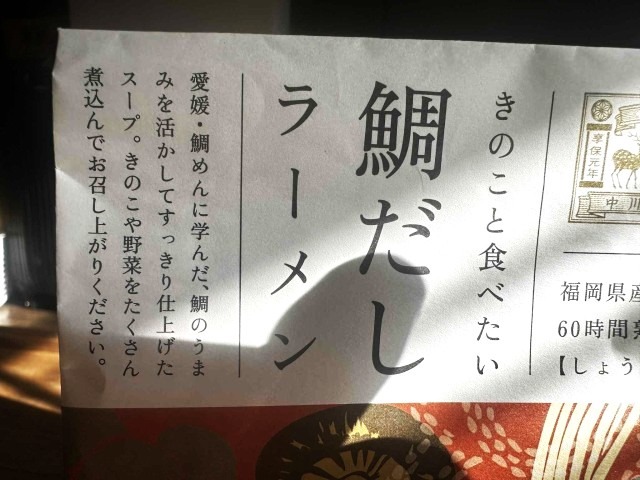 享保元年
中川
福岡県産
60時間
【しょう
きのこと食べたい
鯛だし
ラーメン
愛媛・鯛めんに学んだ、鯛のうま
みを活かしてすっきり仕上げた
スープ。きのこや野菜をたくさん
煮込んでお召し上がりください。